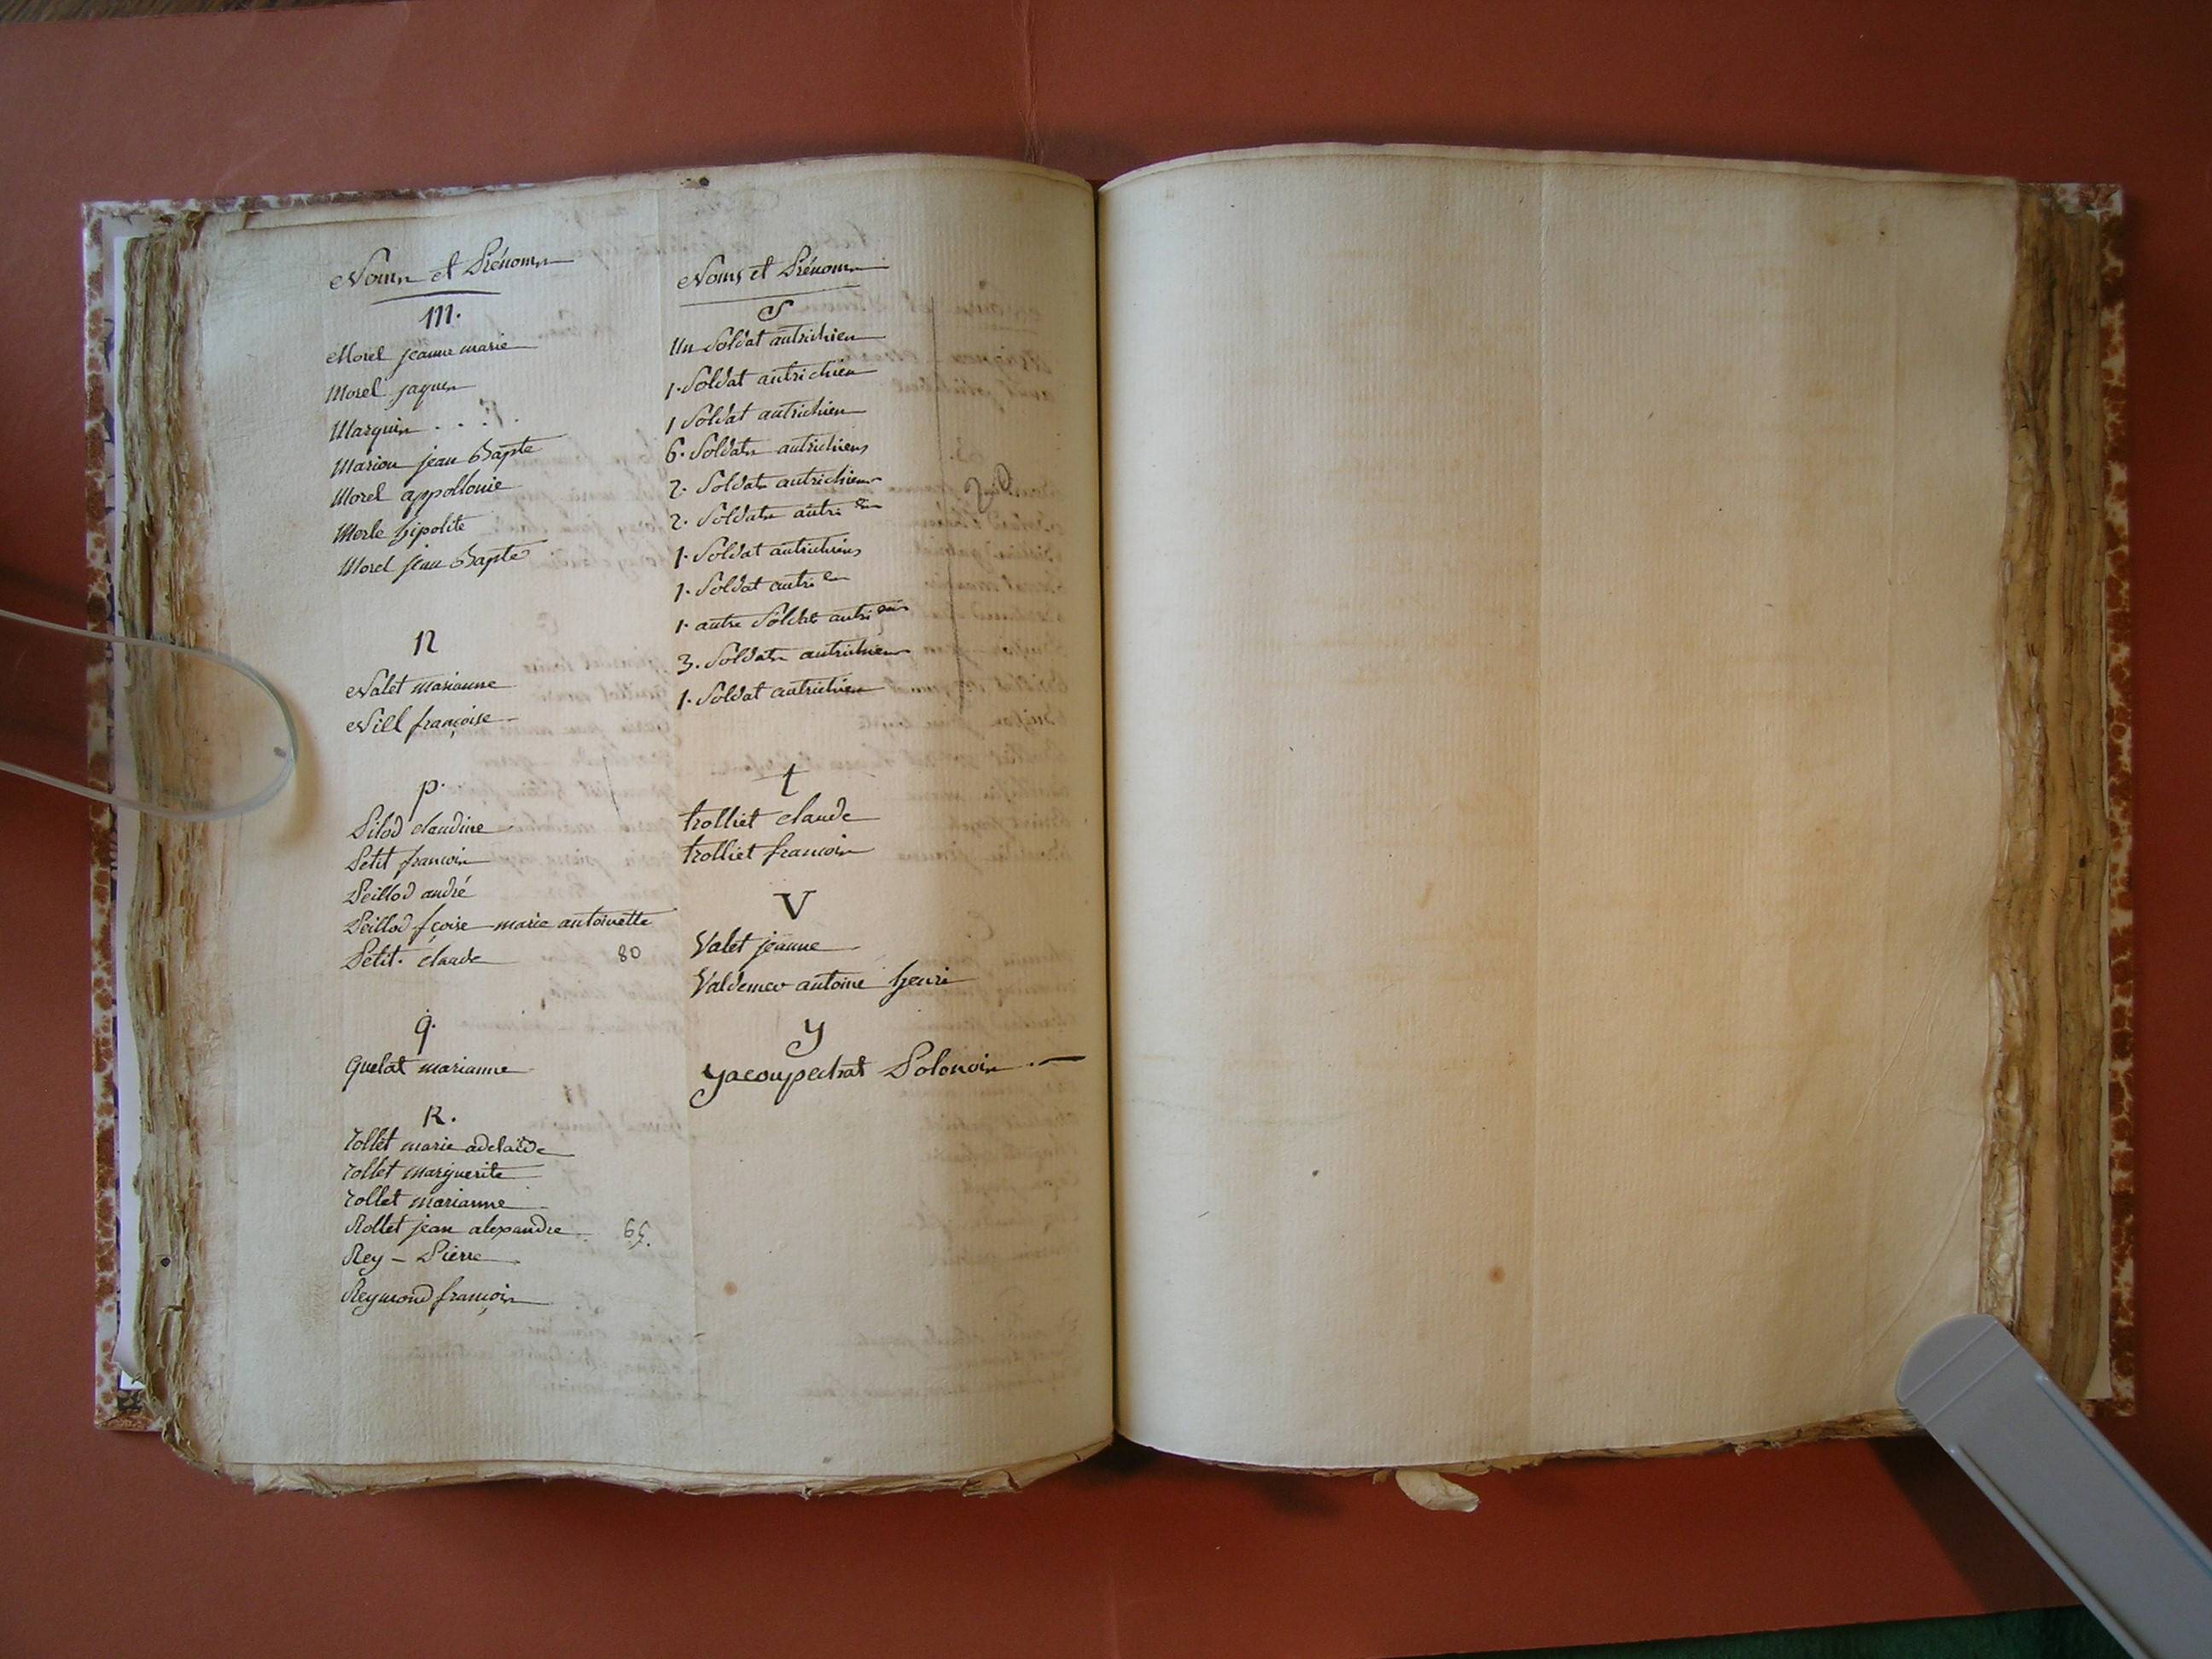 Noms et Prénoms
M.
Morel jeanne marie
Morel jaques
Marquis . . . .
Marion jean Bapte
Morel appollonie
Merle hipolite
Morel jean Bapte
N
Nalet marianne
Nill françoise
P.
Pilod claudine
Petit francois
Peillod andré
Peillod fçoise marie antoinette
Petit. claude 80
q.
Quelat marianne
R.
rollet marie adelaïde
rollet marguerite
rollet marianne
Rollet jean alexandre 65.
Rey - Pierre
Reymond françois
Noms et Prénoms
S
Un Soldat autrichien
1. Soldat autrichien
1 Soldat autrichien
6. Soldats autrichiens
2. Soldats autrichiens
2. Soldats autri ens
1. Soldat autrichiens
1. Soldat autri en
1. autre Soldat autri en
3. Soldats autrichiens
1. Soldat autrichien
20
t
trolliet claude
trolliet francois
V
Valet jeanne
antoine henri
y
yacoupechat Polonois . —